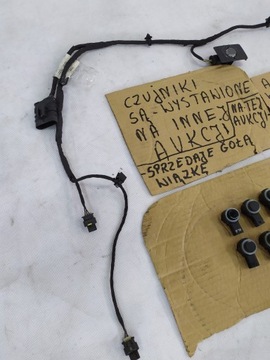 CZUJNIKI
SĄ - WYSTAWIONE
NA INNEJ
AUKCJI
SPRZEDAJĘ GOŁĄ
WIĄZKĘ
NA TEJ
AUKCJI